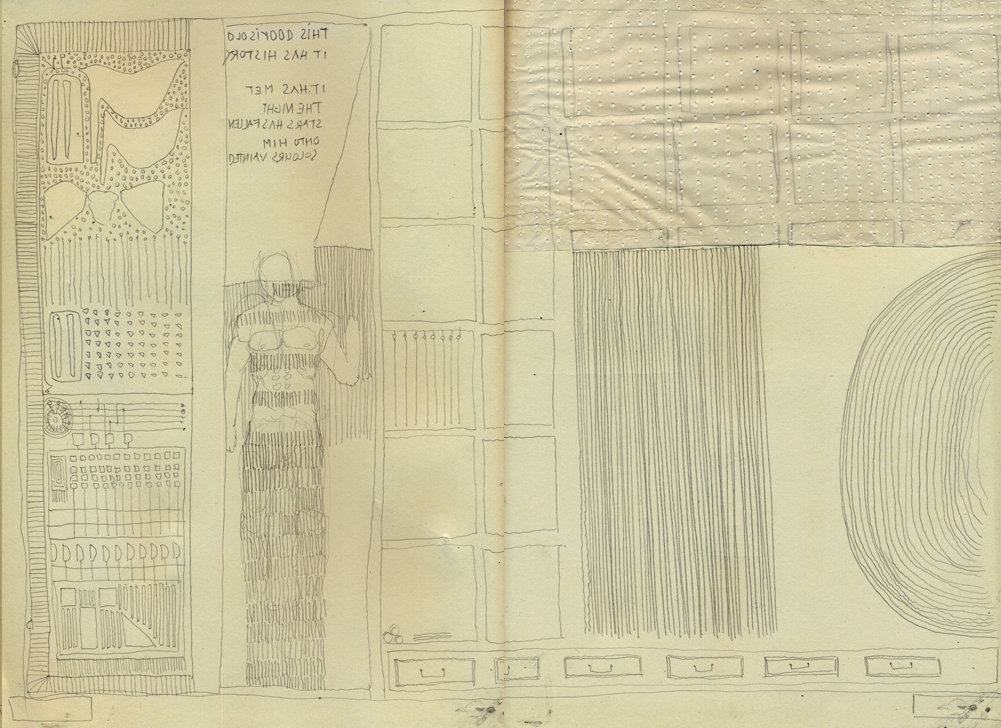 THIS DOOR IS OLD
IT HAS HISTORY
IT HAS MET
THE NIGHT
STARS HAS FALLEN
ONTO HIM
COLOURS